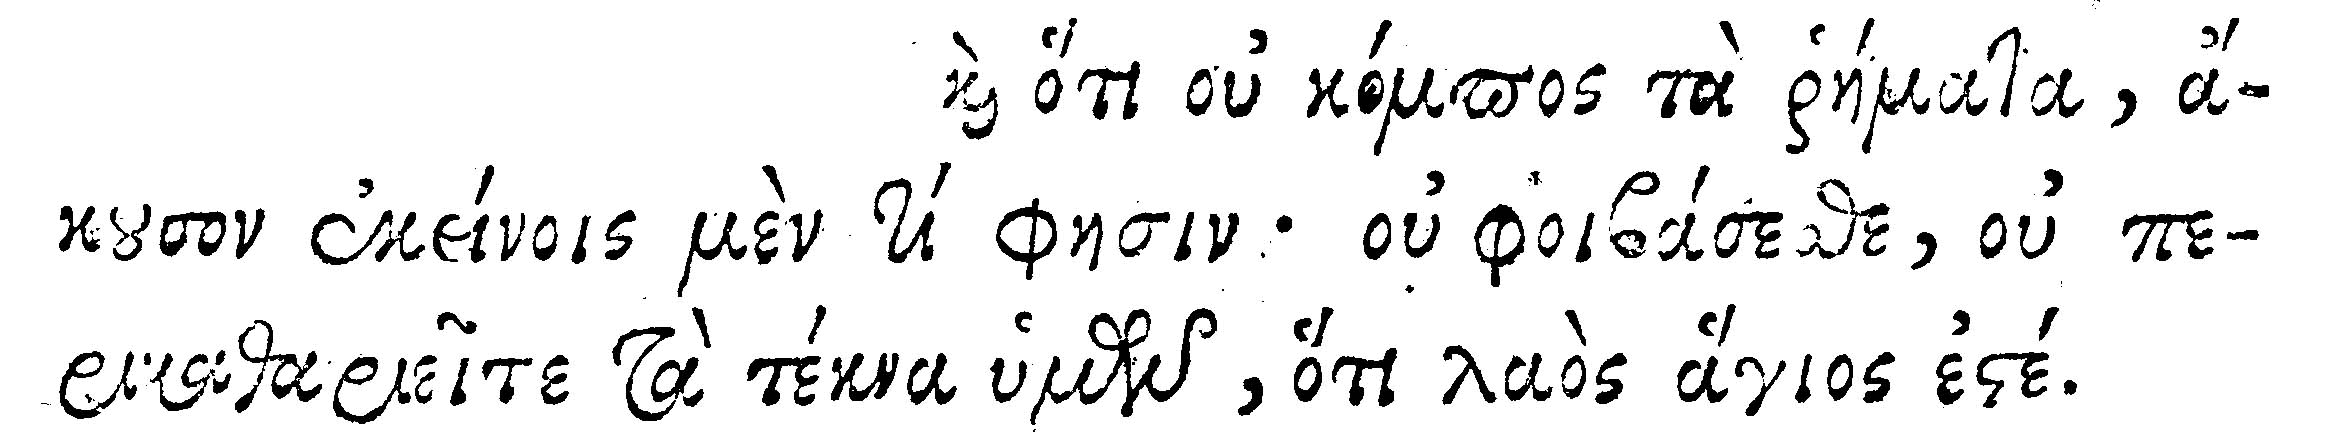 καὶ ὅτι οὐ κόμπος τὰ ῥήματα, ἄ-
κουσον ἐκείνοις μὲν τί φησιν· οὐ φοιβάσεσθε, οὐ πε-
ρικαθαριεῖτε τὰ τέκνα ὑμῶν, ὅτι λαὸς ἅγιος ἐστέ.